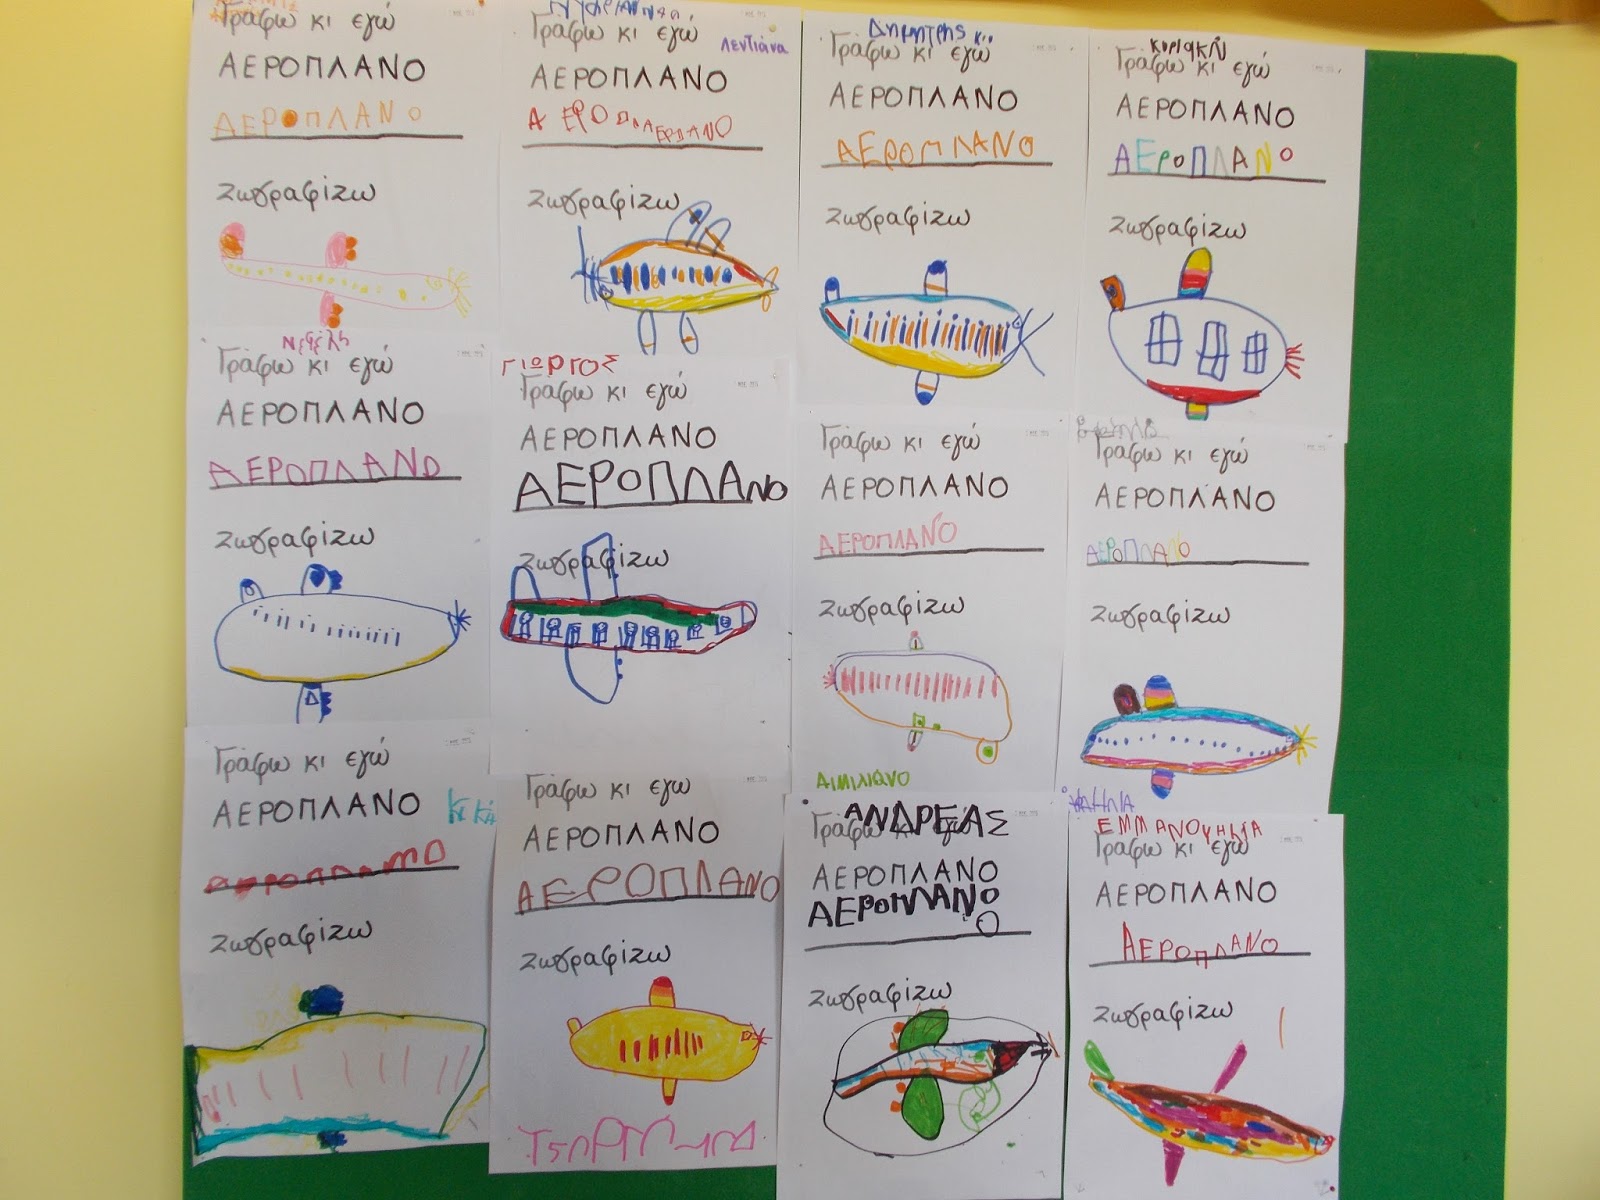 Γράφω κι εγώ
ΑΕΡΟΠΛΑΝΟ
ΑΕΡΟΠΛΑΝΟ
Ζωγραφίζω
Γράφω κι εγώ
Λεντιάνα
ΑΕΡΟΠΛΑΝΟ
Ζωγραφίζω
Δημήτρης κ..
Γράφω κι εγώ
ΑΕΡΟΠΛΑΝΟ
ΑΕΡΟΠΛΑΝΟ
Ζωγραφίζω
ΚΥΡΙΑΚΗ
Γράφω κι εγώ
ΑΕΡΟΠΛΑΝΟ
ΑΕΡΟΠΛΑΝΟ
Ζωγραφίζω
Νεφέλη
Γράφω κι εγώ
ΑΕΡΟΠΛΑΝΟ
ΑΕΡΟΠΛΑΝΟ
Ζωγραφίζω
ΓΙΩΡΓΟΣ
Γράφω κι εγώ
ΑΕΡΟΠΛΑΝΟ
ΑΕΡΟΠΛΑΝΟ
Ζωγραφίζω
Γράφω κι εγώ
ΑΕΡΟΠΛΑΝΟ
ΑΕΡΟΠΛΑΝΟ
Ζωγραφίζω
ΑΙΜΙΛΙΑΝΟ
Γράφω κι εγώ
ΑΕΡΟΠΛΑΝΟ
ΑΕΡΟΠΛΑΝΟ
Ζωγραφίζω
Γράφω κι εγώ
ΑΕΡΟΠΛΑΝΟ
Ζωγραφίζω
Γράφω κι εγώ
ΑΕΡΟΠΛΑΝΟ
ΑΕΡΟΠΛΑΝΟ
Ζωγραφίζω
ΑΝΔΡΕΑΣ
Γράφω κι εγώ
ΑΕΡΟΠΛΑΝΟ
ΑΕΡΟΠΛΑΝΟ
Ζωγραφίζω
ΕΜΜΑΝΟΥΗΛΙΑ
Γράφω κι εγώ
ΑΕΡΟΠΛΑΝΟ
ΑΕΡΟΠΛΑΝΟ
Ζωγραφίζω